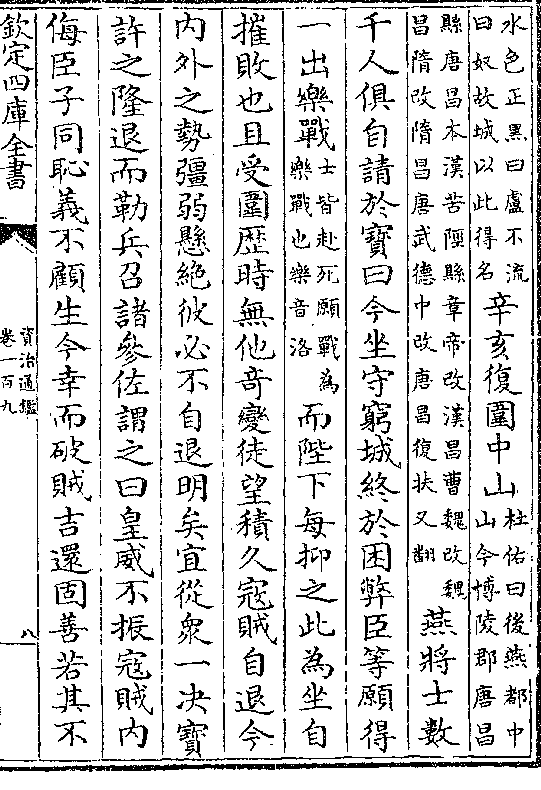 水色正黑曰盧不流
曰奴故城以此得名
辛亥復圍中山
杜佑曰後燕都中
山今博陵郡唐昌
縣唐昌本漢苦陘縣章帝改漢昌曹魏改魏
昌隋改隋昌唐武德中改唐昌復扶又翻
燕將士數
千人俱自請於寶曰今坐守窮城終於困弊臣等願得
一出樂戰
士皆赴死願戰為
樂戰也樂音洛
而陛下每抑之此為坐自
摧敗也且受圍歷時無他奇變徒望積久寇賊自退今
內外之勢彊弱懸絶彼必不自退明矣宜從衆一決寶
許之隆退而勒兵召諸參佐謂之曰皇威不振寇賊內
侮臣子同恥義不顧生今幸而破賊吉還固善若其不
欽定四庫全書
資治通鑑
卷一百九
八